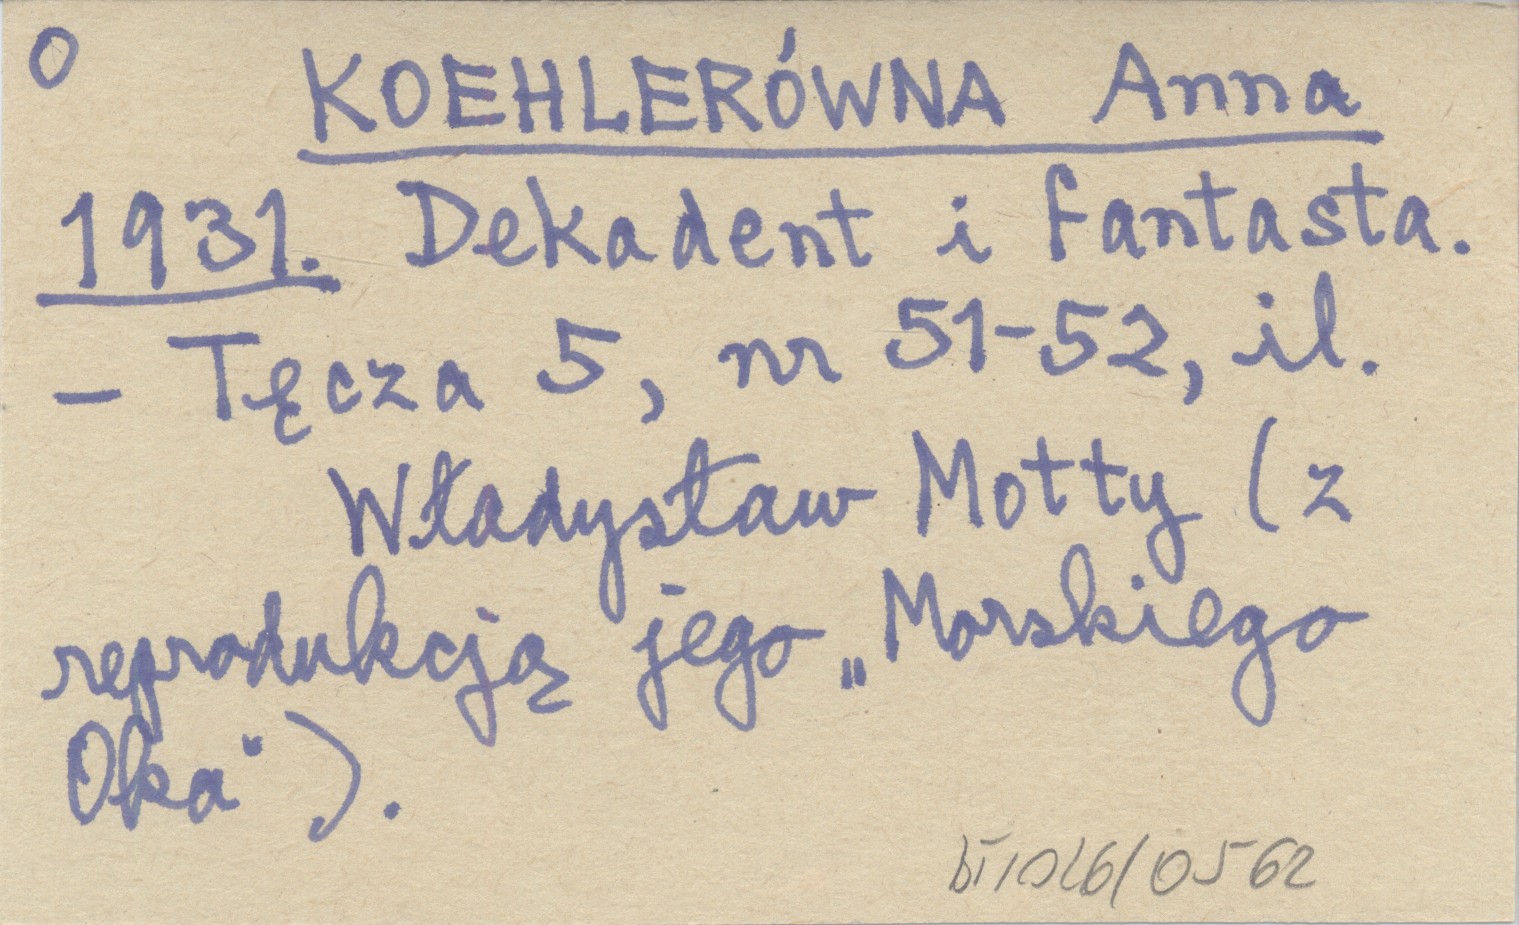 O
KOEHLERÓWNA Anna
1931. Dekadent i fantasta.
– Tęcza 5, nr 51-52, il.
Władysław Motty (z
reprodukcją jego „Morskiego
Oka").
/0562